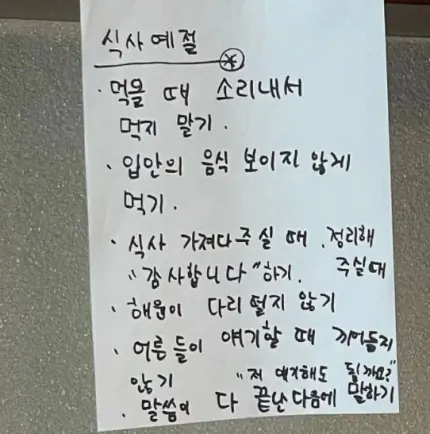 식사예절
· 먹을 때 소리내서
먹지 말기.
· 입안의 음식 보이지 않게
먹기.
· 식사 가져다주실 때, 정리해
주실때
"감사합니다"하기.
· 해원이 다리 떨지 않기
· 어른들이 얘기할 때 끼어들지
않기 "저 얘기해도 될까요?"
· 말씀이 다 끝난다음에 말하기